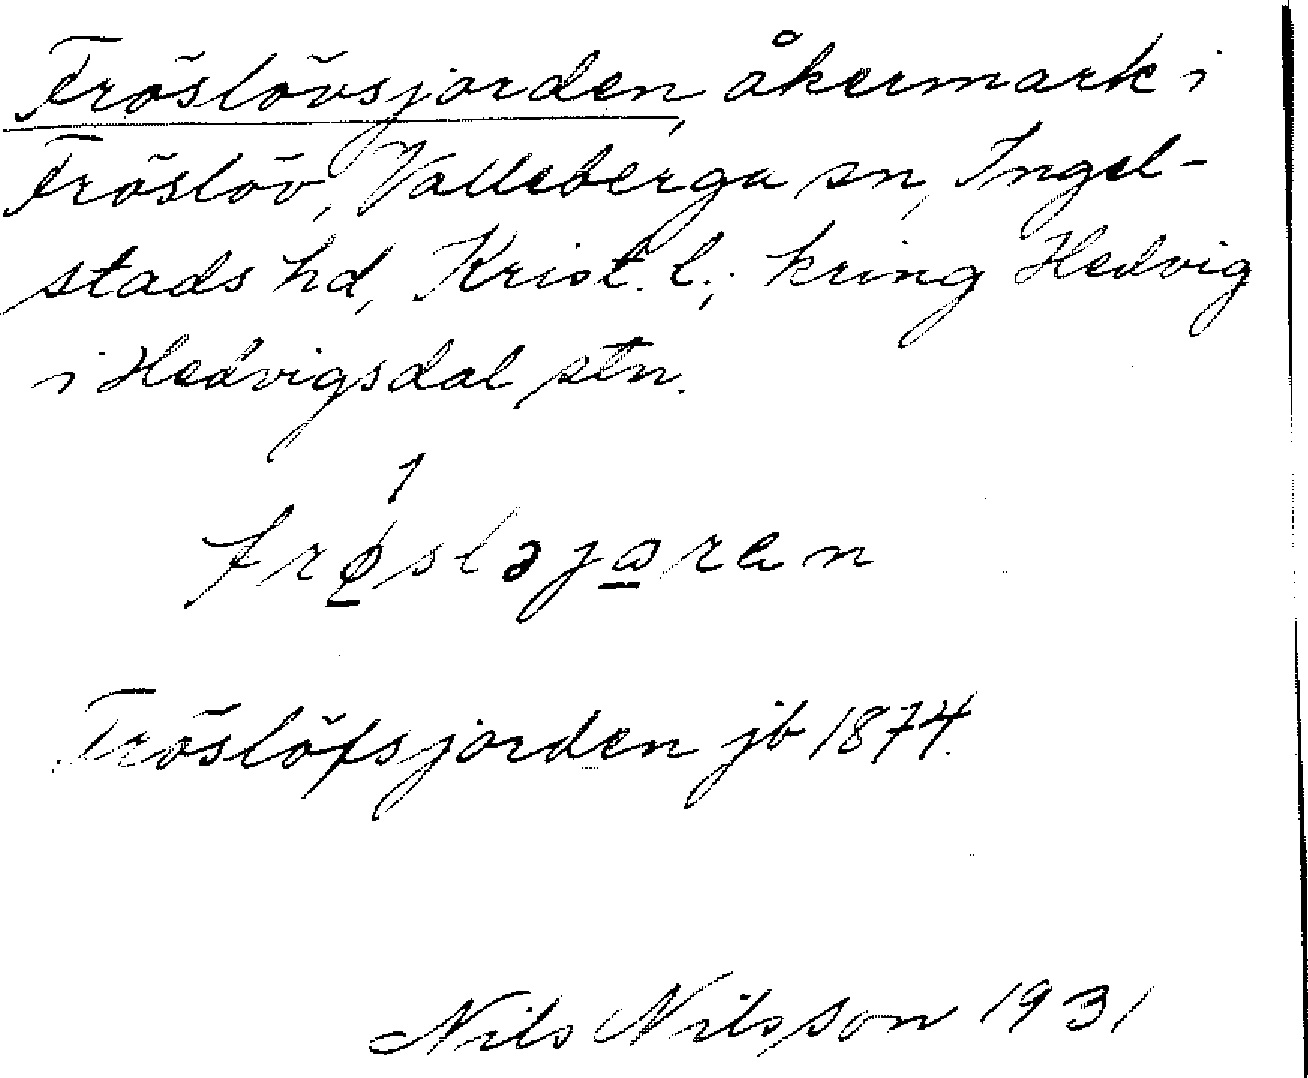 Fröslövsjorden, åkermark i
Fröslöv, Valleberga sn, Ingel-
stads hd, Krist. l.; kring Hedvig
i Hedvigsdal stn.
1
frø̠sləja̠ren
Fröslöfsjorden jb 1874.
Nils Nilsson 1931